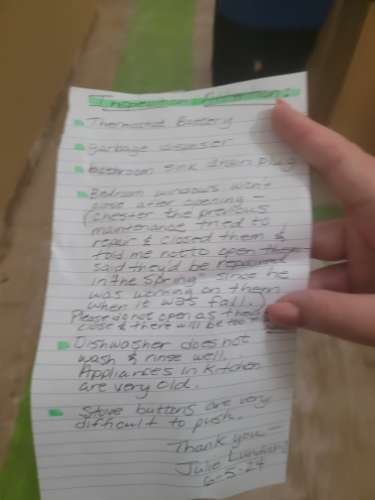 Inspection Attention:
Thermostat Battery
garbage disposer
bathroom sink drain plug
Bedroom windows won't
close after opening -
(Chester the previous
maintenance tried to
repair & closed them &
told me not to open them
said they'd be repaired
in the spring since he
was working on them
when it was fall.)
Please do not open as they
close & there will be too
Dishwasher does not
wash & rinse well.
Appliances in kitchen
are very old.
Stove buttons are very
difficult to push.
Thank you -
Julie
6-5-24